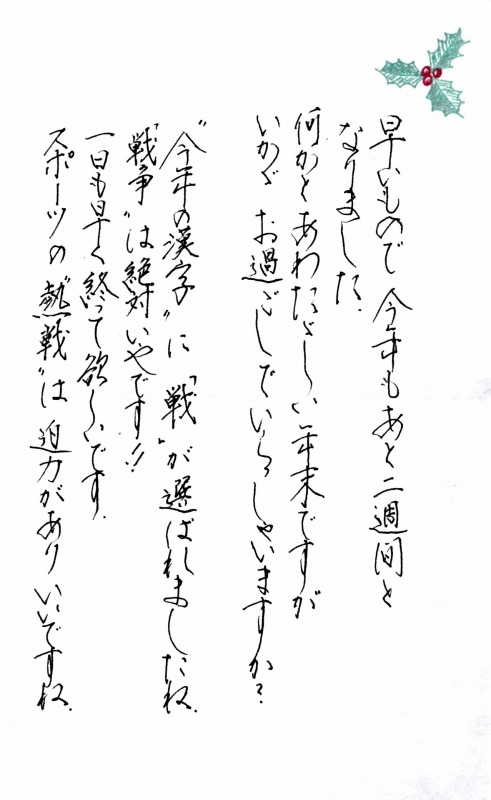 早いもので今年もあと二週間と
なりました.
何かとあわただしい年末ですが
いかがお過ごしでいらっしゃいますか?
"今年の漢字"に"戦"が選ばれましたね.
"戦争"は絶対いやです!!
一日も早く終って欲しいです.
スポーツの"熱戦"は迫力がありいいですね.